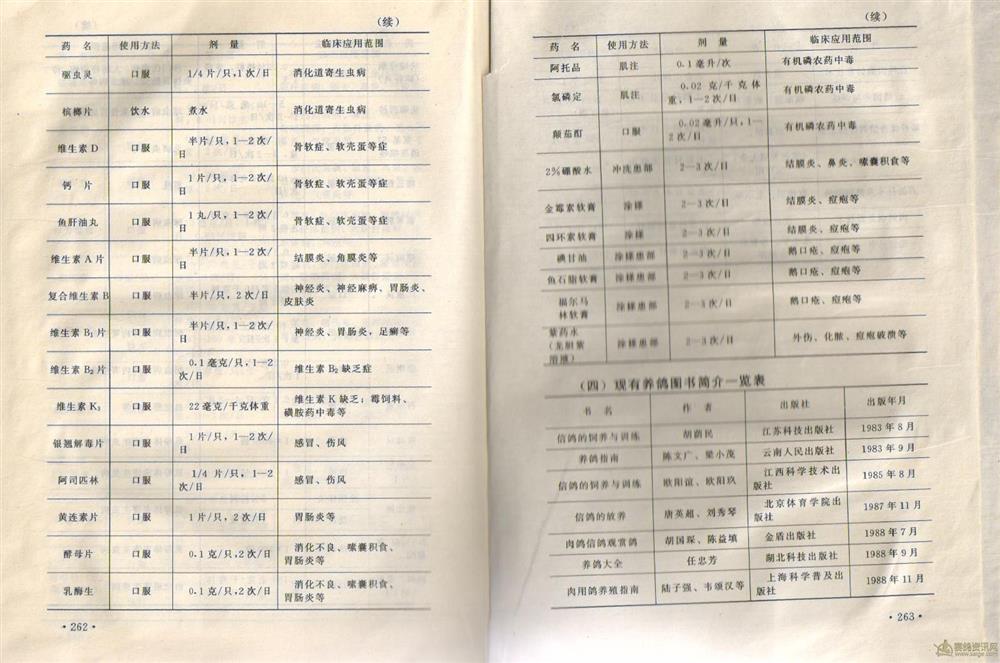 （续）
药 名 使用方法 剂 量 临床应用范围
驱虫灵 口服 1/4 片/只，1 次/日 消化道寄生虫病
槟榔片 饮水 煮水 消化道寄生虫病
维生素 D 口服 半片/只，1—2次/日 骨软症、软壳蛋等症
钙 片 口服 1 片/只，1—2次/日 骨软症、软壳蛋等症
鱼肝油丸 口服 1 丸/只，1—2次/日 骨软症、软壳蛋等症
维生素 A 片 口服 半片/只，1—2次/日 结膜炎、角膜炎等
复合维生素 B 口服 半片/只，2 次/日 神经炎、神经麻痹、胃肠炎、皮肤炎
维生素 B₁ 片 口服 半片/只，1—2次/日 神经炎、胃肠炎，足癣等
维生素 B₂ 片 口服 0.1 毫克/只，1—2次/日 维生素 B₂ 缺乏症
维生素 K₃ 口服 22 毫克/千克体重 维生素 K 缺乏；霉饲料、磺胺药中毒等
银翘解毒片 口服 1 片/只，1—2次/日 感冒、伤风
阿司匹林 口服 1/4 片/只，1—2次/日 感冒、伤风
黄连素片 口服 1 片/只，2 次/日 胃肠炎等
酵母片 口服 0.1 克/只，2 次/日 消化不良、嗉囊积食、胃肠炎等
乳酶生 口服 0.1 克/只，2 次/日 消化不良、嗉囊积食、胃肠炎等
·262·
（续）
药 名 使用方法 剂 量 临床应用范围
阿托品 肌注 0.1 毫升/次 有机磷农药中毒
氯磷定 肌注 0.02 克/千克体重，1—2次/日 有机磷农药中毒
颠茄酊 口服 0.02 毫升/只，1—2次/日 有机磷农药中毒
2%硼酸水 冲洗患部 2—3 次/日 结膜炎、鼻炎、嗉囊积食等
金霉素软膏 涂搽 2—3 次/日 结膜炎、痘疱等
四环素软膏 涂搽 2—3 次/日 结膜炎、痘疱等
碘甘油 涂搽患部 2—3 次/日 鹅口疮、痘疱等
鱼石脂软膏 涂搽患部 2—3 次/日 鹅口疮、痘疱等
福尔马林软膏 涂搽患部 2—3 次/日 鹅口疮、痘疱等
紫药水（龙胆紫溶液） 涂搽患部 2—3 次/日 外伤、化脓、痘疱破溃等
（四）现有养鸽图书简介一览表
书 名 作 者 出版社 出版年月
信鸽的饲养与训练 胡荫民 江苏科技出版社 1983 年 8 月
养鸽指南 陈文广、梁小茂 云南人民出版社 1983 年 9 月
信鸽的饲养与训练 欧阳谊、欧阳玖 江西科学技术出版社 1985 年 8 月
信鸽的放养 唐英超、刘秀琴 北京体育学院出版社 1987 年 11 月
肉鸽信鸽观赏鸽 胡国琛、陈益填 金盾出版社 1988 年 7 月
养鸽大全 任忠芳 湖北科技出版社 1988 年 9 月
肉用鸽养殖指南 陆子强、韦颂汉等 上海科学普及出版社 1988 年 11 月
·263·
赛鸽资讯网
www.saige.com